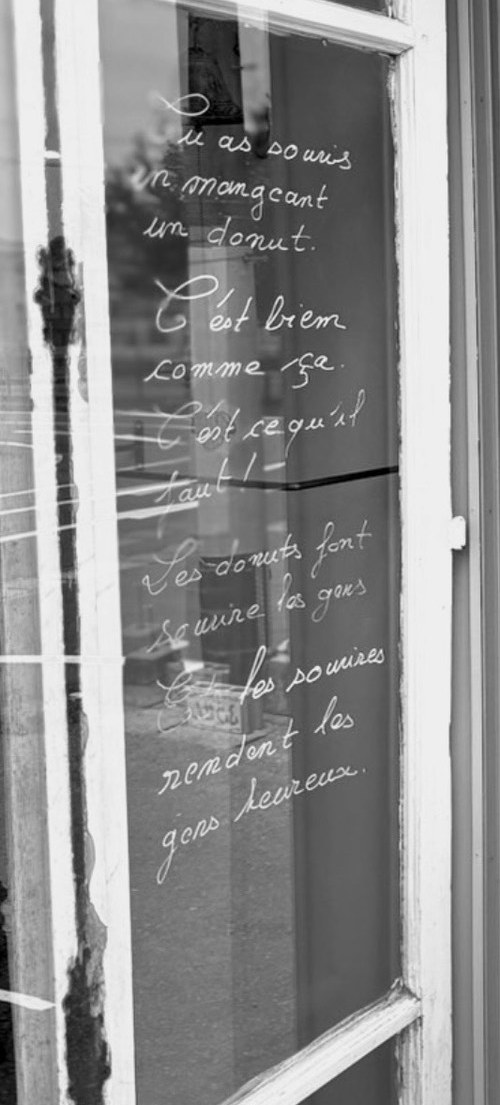 Tu as souris
en mangeant
un donut.
C'est bien
comme ça.
C'est ce qu'il
faut!
Les donuts font
sourire les gens
Et les sourires
rendent les
gens heureux.